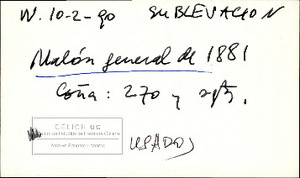 W. 10-2-90 SUBLEVACION
Malón general de 1881
Coña: 270 y sgts.
CELICH UC
USADOS